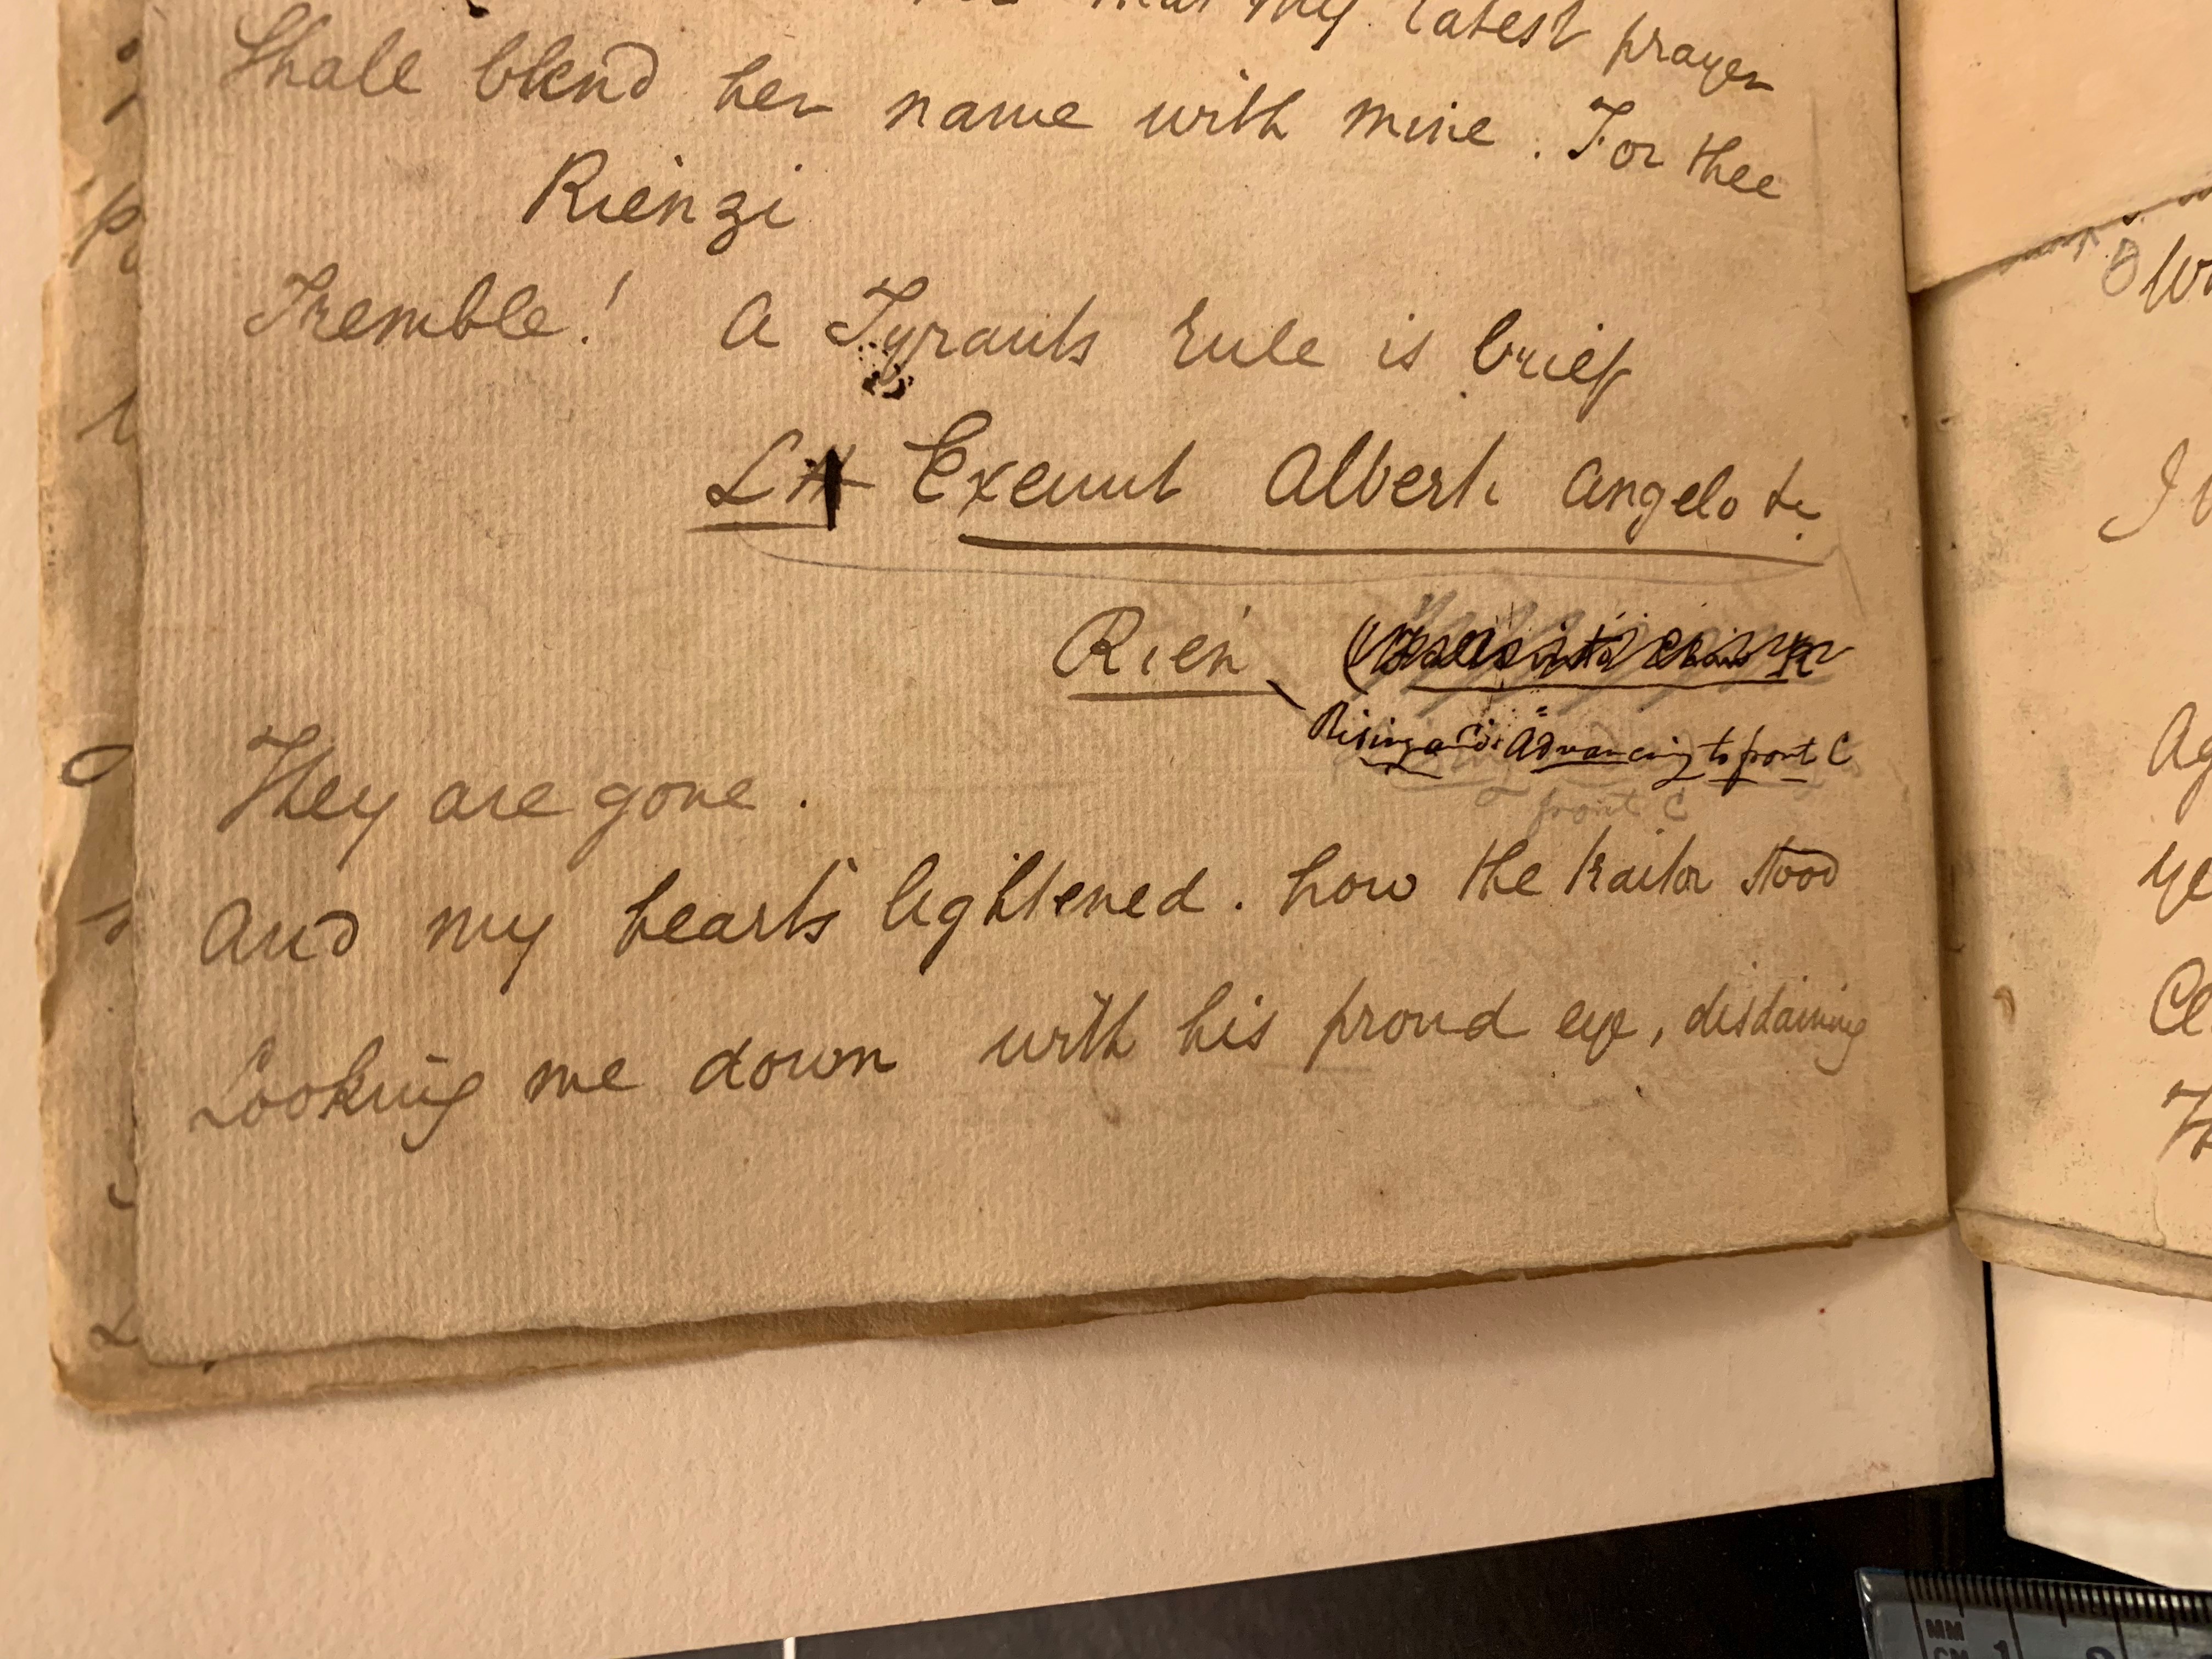 my latest prayer
Shall blend her name with mine. For thee
Rienzi
Tremble! A Tyrants rule is brief
LH Exeunt Alberti Angelo &c
Rien
Rising and Advancing to front C
front C
They are gone.
And my hearts lightened. how the traitor stood
Looking me down with his proud eye, disdaining
MM
CM 1 2